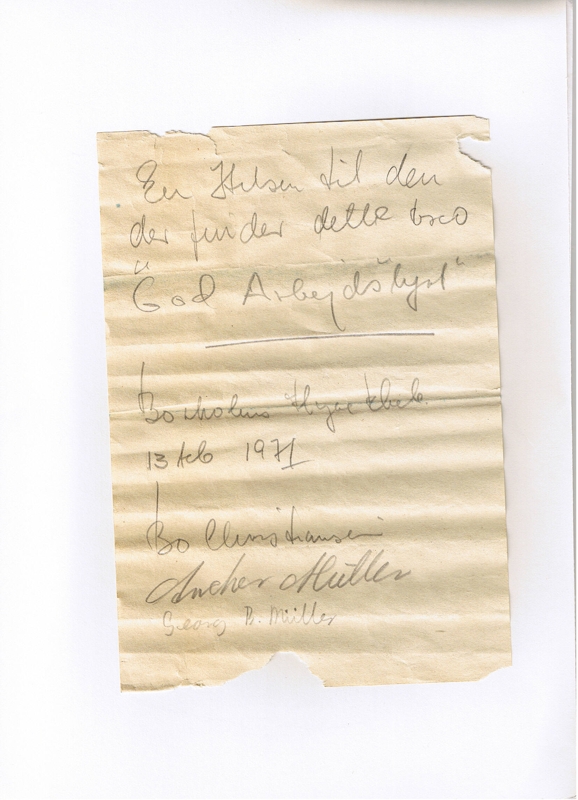 En Hilsen til den
der finder dette
"God Arbejdslyst"
13 feb 1971
Bo Christiansen
Ancher Müller
Georg B. Müller